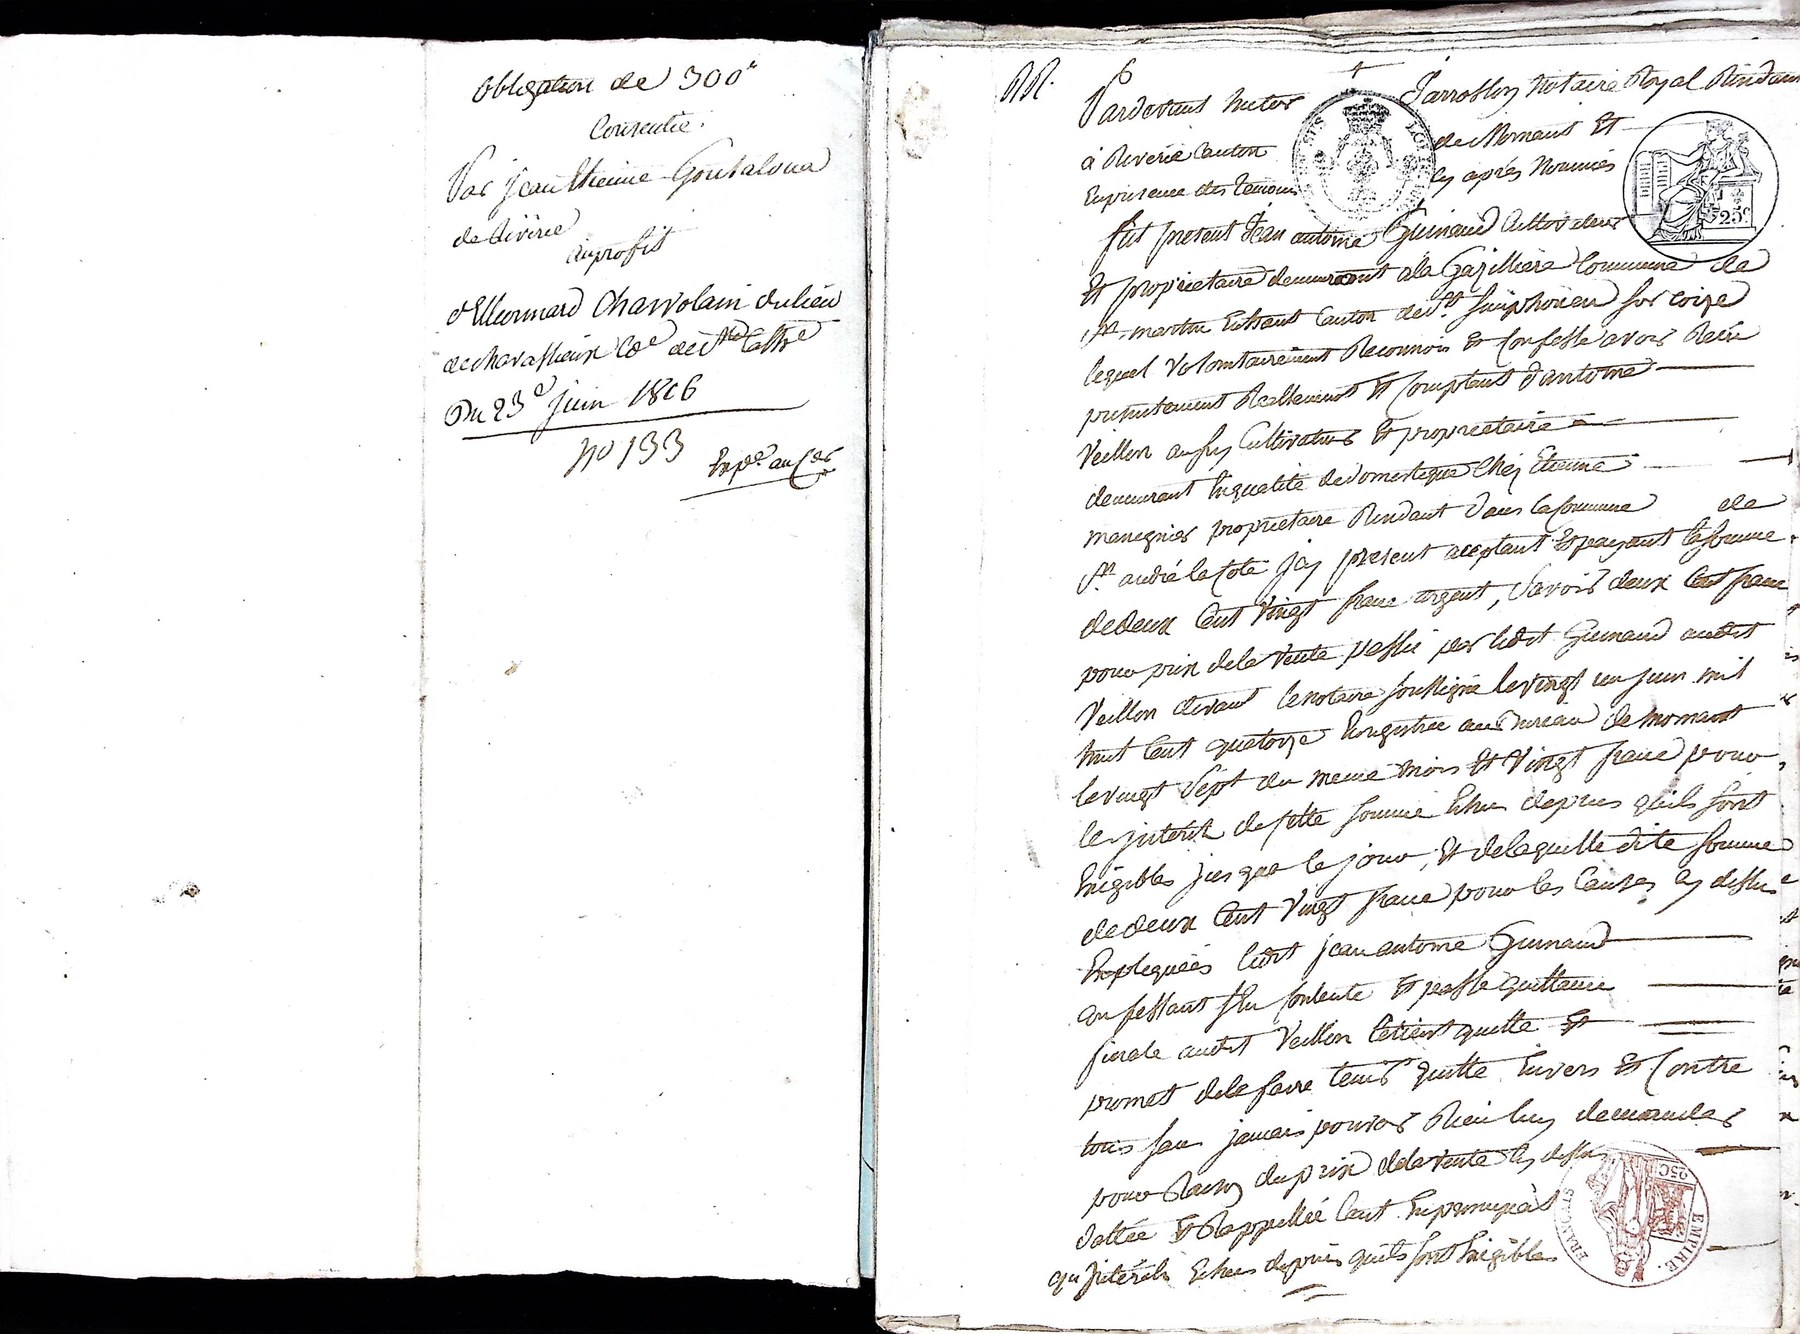 obligation de 300#
Consentie
Par jean Etienne Goutalona
de Riverie
au profit
d'Ennemond Charvolain du lieu
de chavassieux Cne de Ste Cathne
Du 23e juin 1816
No 133
Expe. au Cer
RR.
Pardevant Mctor Jarrosson Notaire Royal Résidant
à Riverie Canton de Mornant Et
En presence des Temoins Cy après Nommés
fut present Jean antoine Guinand Cultivateur
Et proprietaire demeurant a la Gazilliere Commune de
St. martin En haut Canton de St. Simphorien sur coize
lequel Volontairement Reconnois Et Confesse avoir Recu
presentement Reellement Et Comptant d'antoine
Veillon aussy Cultivateur Et proprietaire
demeurant En qualité de domestique Chez Etienne
manegnier proprietaire Residant dans la Commune de
St. andré la Cote Icy present acceptant Et payant la somme
de deux Cent Vingt franc argent, Savoir deux Cent franc
pour prix de la Vente passée par ledit Guinand audit
Veillon devant le notaire soussigné le vingt un juin mil
huit Cent quatorze Enregistrée au Bureau de mornant
le vingt Sept du meme mois Et Vingt franc pour
le jnterêt de cette somme Echus depuis quils sont
Exigibles jusque le jour, Et de laquelle dite somme
de deux Cent Vingt franc pour les Causes Cy dessus
Expliquées ledit jean antoine Guinand
Confessant s'En Contente Et passe quittance
finale audit Veillon le tient quitte Et
promet de le faire tenir quitte Envers Et Contre
tous sans jamais pouvoir Rien luy demander
pour Raison du prix de la Vente Cy dessus
dattée Et Rappellée tant En principal
qu'Interêts Echus depuis quils sont Exigibles
25c
EMPIRE FRANÇAIS
25C